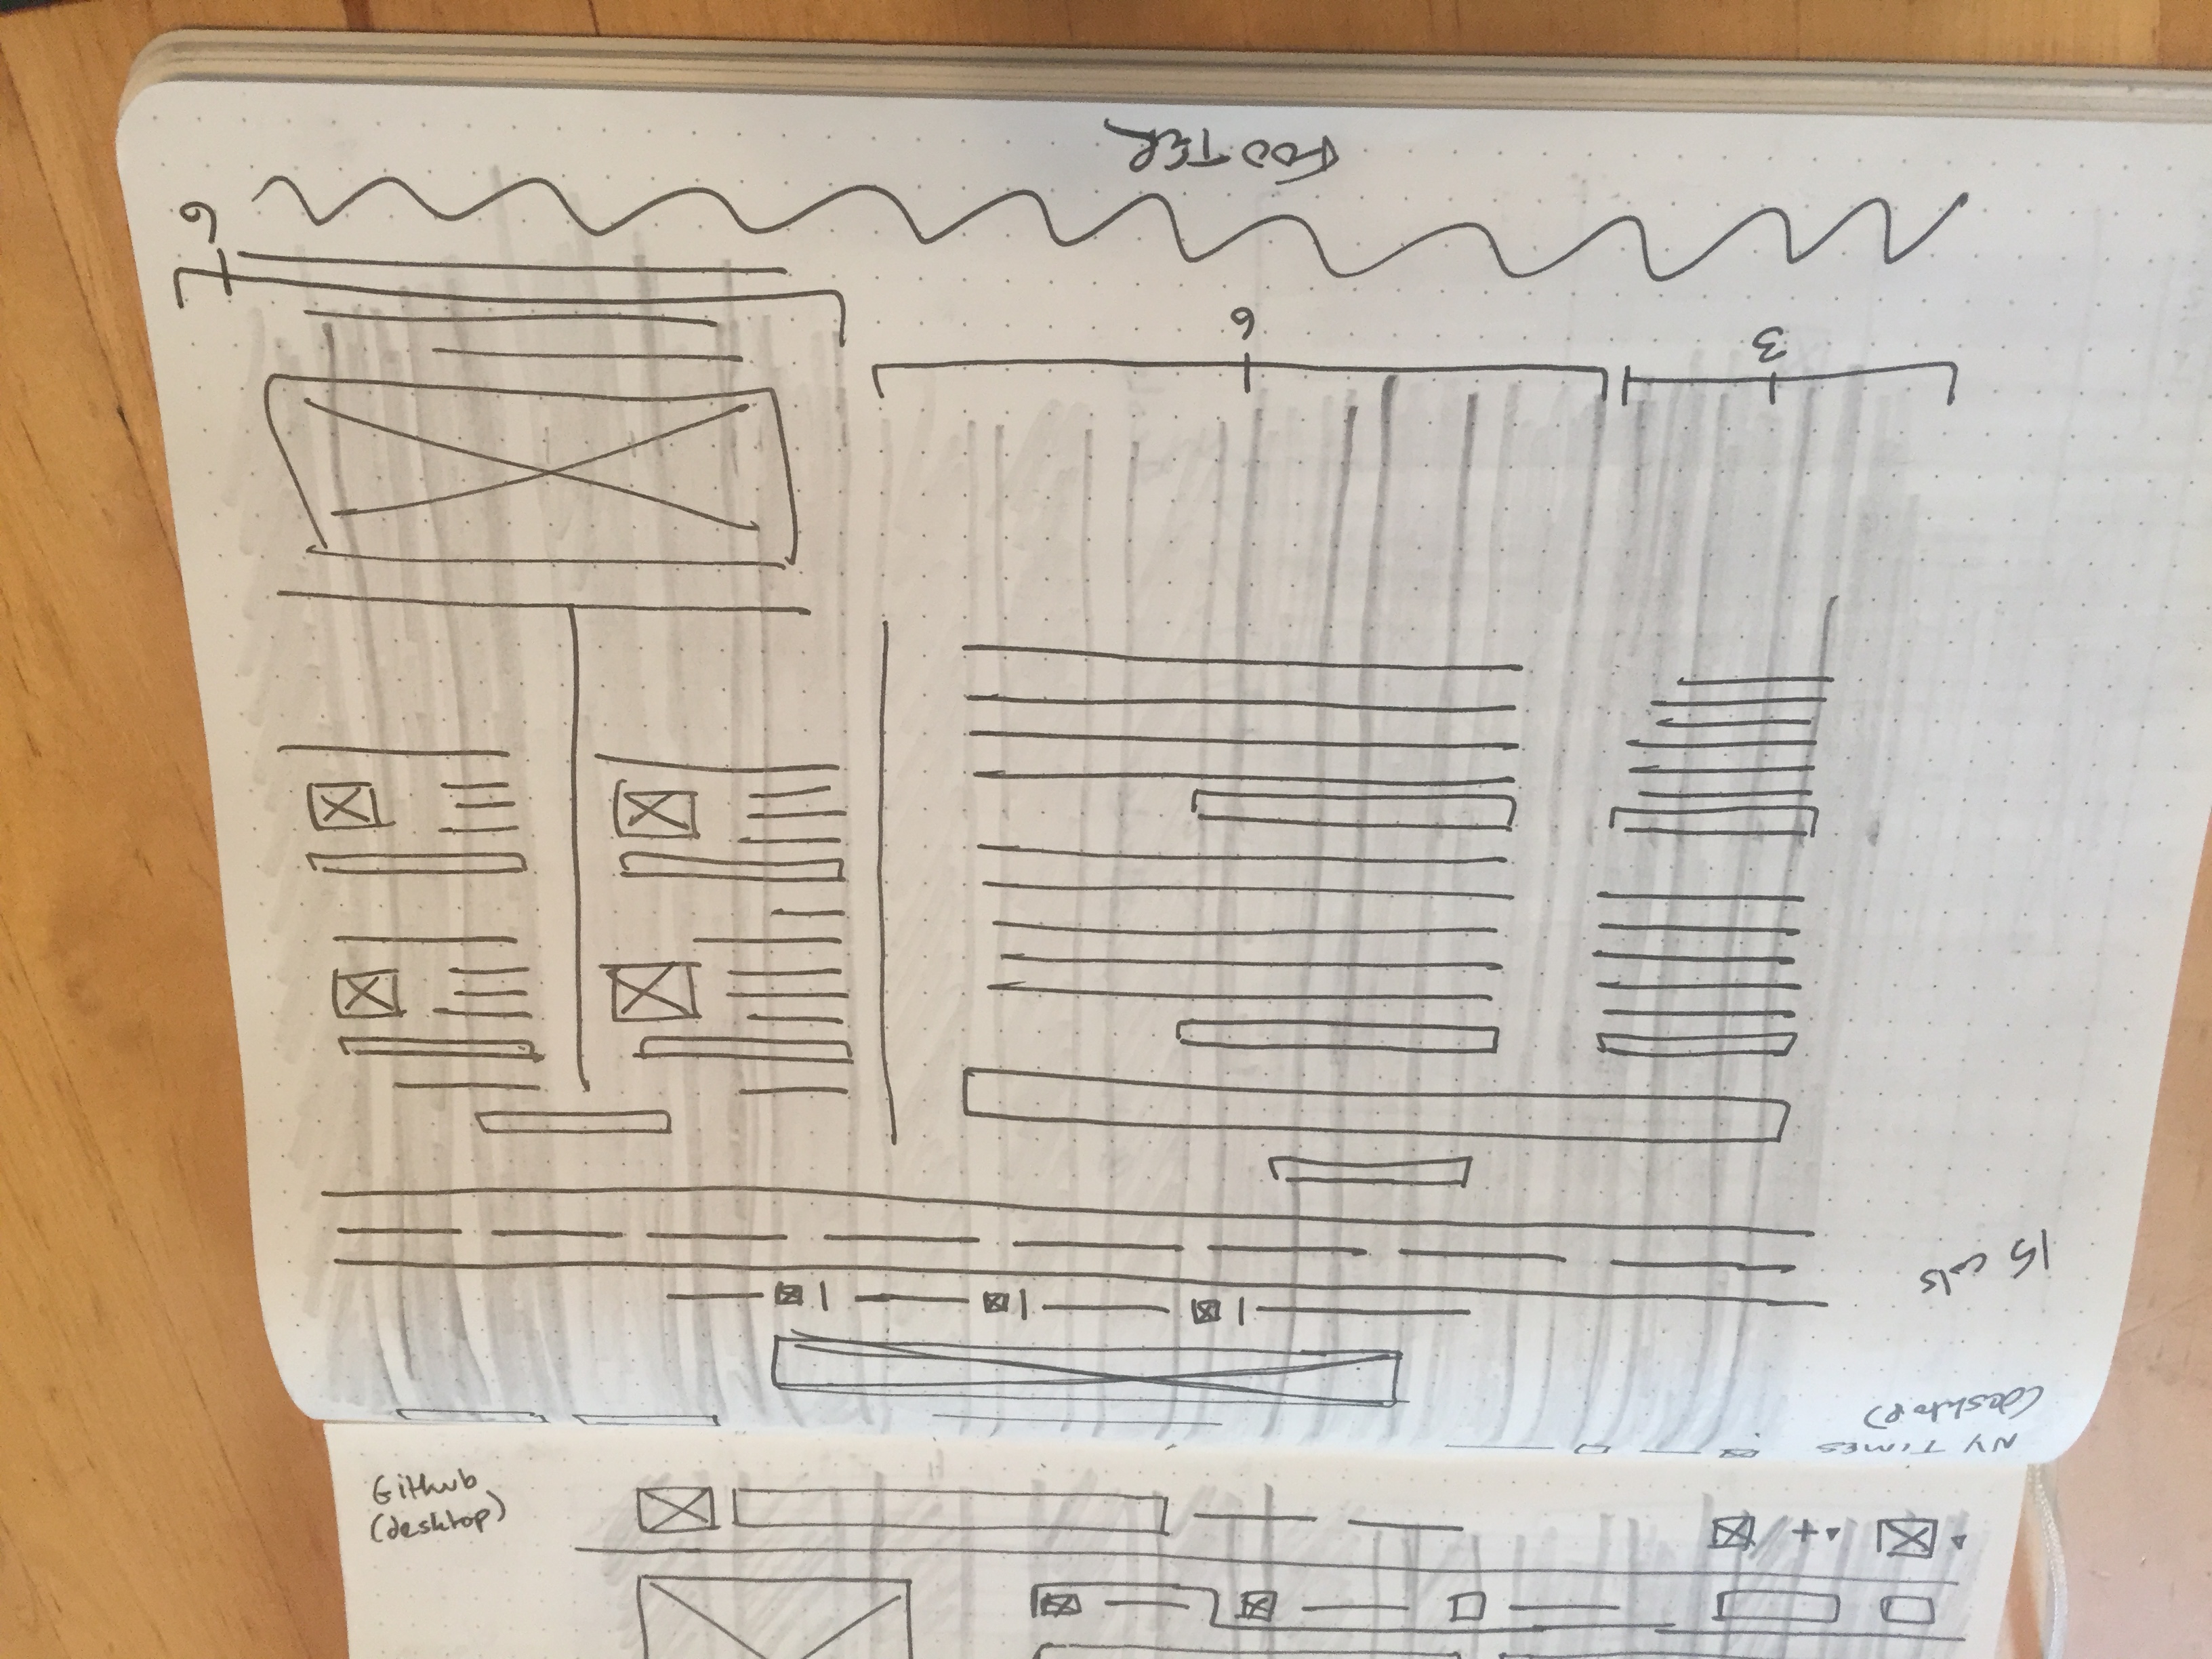 GitHub
(desktop)
NY TIMES
(desktop)
15 cols
3
6
6
FOOTER